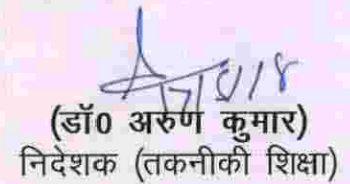 (डॉ0 अरुण कुमार)
निदेशक (तकनीकी शिक्षा)